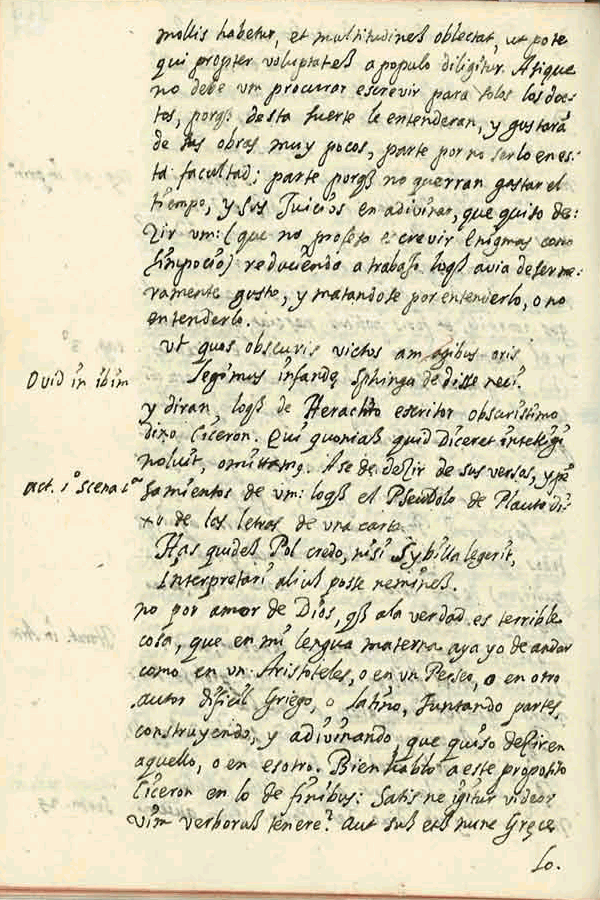 mollis habetur, et multitudineß oblectat, ut pote
qui propter voluptateß a populo diligitur. Asique
no debe vm procurar escrevir para solos los doc-
tos, porqß desta suerte le entenderan, y gustarã
de sus obras muy pocos, parte por no serlo en es-
ta facultad; parte porqß no querran gastar el
tiempo, y sus Juicios en adivinar, que quiso de-
zir vm: (que no profeso escrevir Enigmas como
Simpocio) reduciendo a trabajo loqß avia de ser me-
ramente gusto, y matandose por entenderlo, o no
entenderlo.
ut quos obscuris victos ambagibus oris
Ovid in ibim
legimus infandę Sphinga dedisse neci.
y diran, loqß de Heraclito escritor obscurissimo
dixo Ciceron. Qui quoniaß quid diceret intelligi
noluit, omittamq. Ase de dezir de sus versos, y pẽ
act. 1º scena 1ª
samientos de vm: loqß el Pseudolo de Plauto di-
xo de las letras de una carta.
Has quideß Pol credo, nisi Sybilla legerit,
Interpretari aliuß posse nemineß.
no por amor de Dios, qß ala verdad es terrible
cosa, que en mi lengua materna aya yo de andar
como en un Aristoteles, o en un Perseo, o en otro
autor dificil Griego, o latino, Juntando partes,
construyendo, y adivinando, que quiso dezir en
aquello, o en esotro. Bien hablo a este proposito
Ciceron en lo de finibus: Satis ne igitur videor
vim verboruß tenere? aut suß etß nunc Gręce
lo.